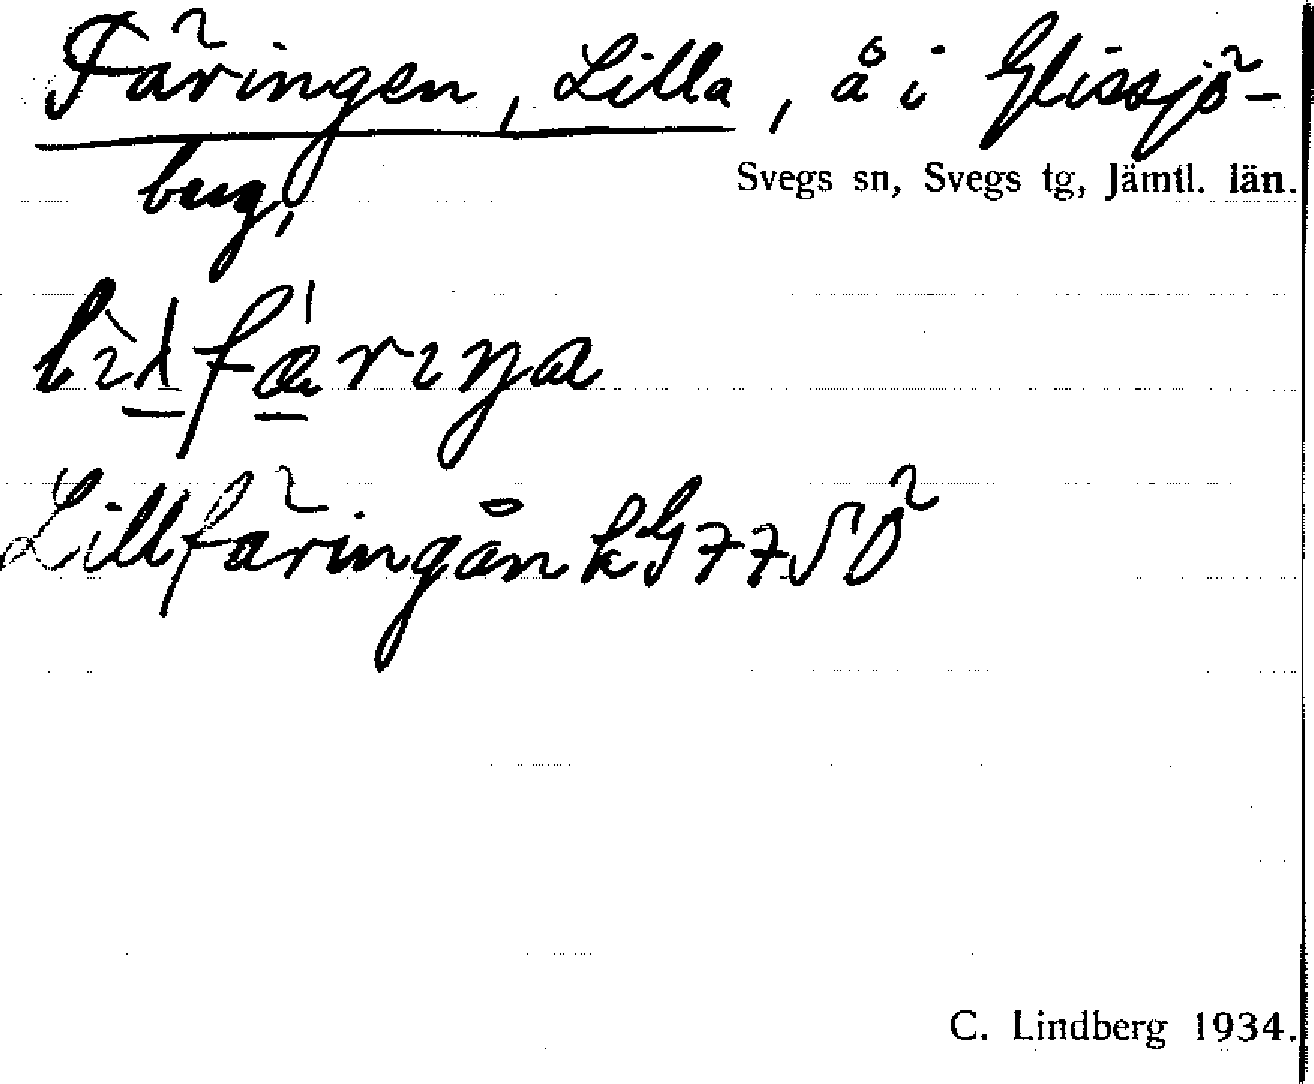 Färingen, Lilla, å i Glissjö-
berg,
Svegs sn, Svegs tg, Jämtl. län.
Lillfäringån kG 77 SÖ
C. Lindberg 1934.